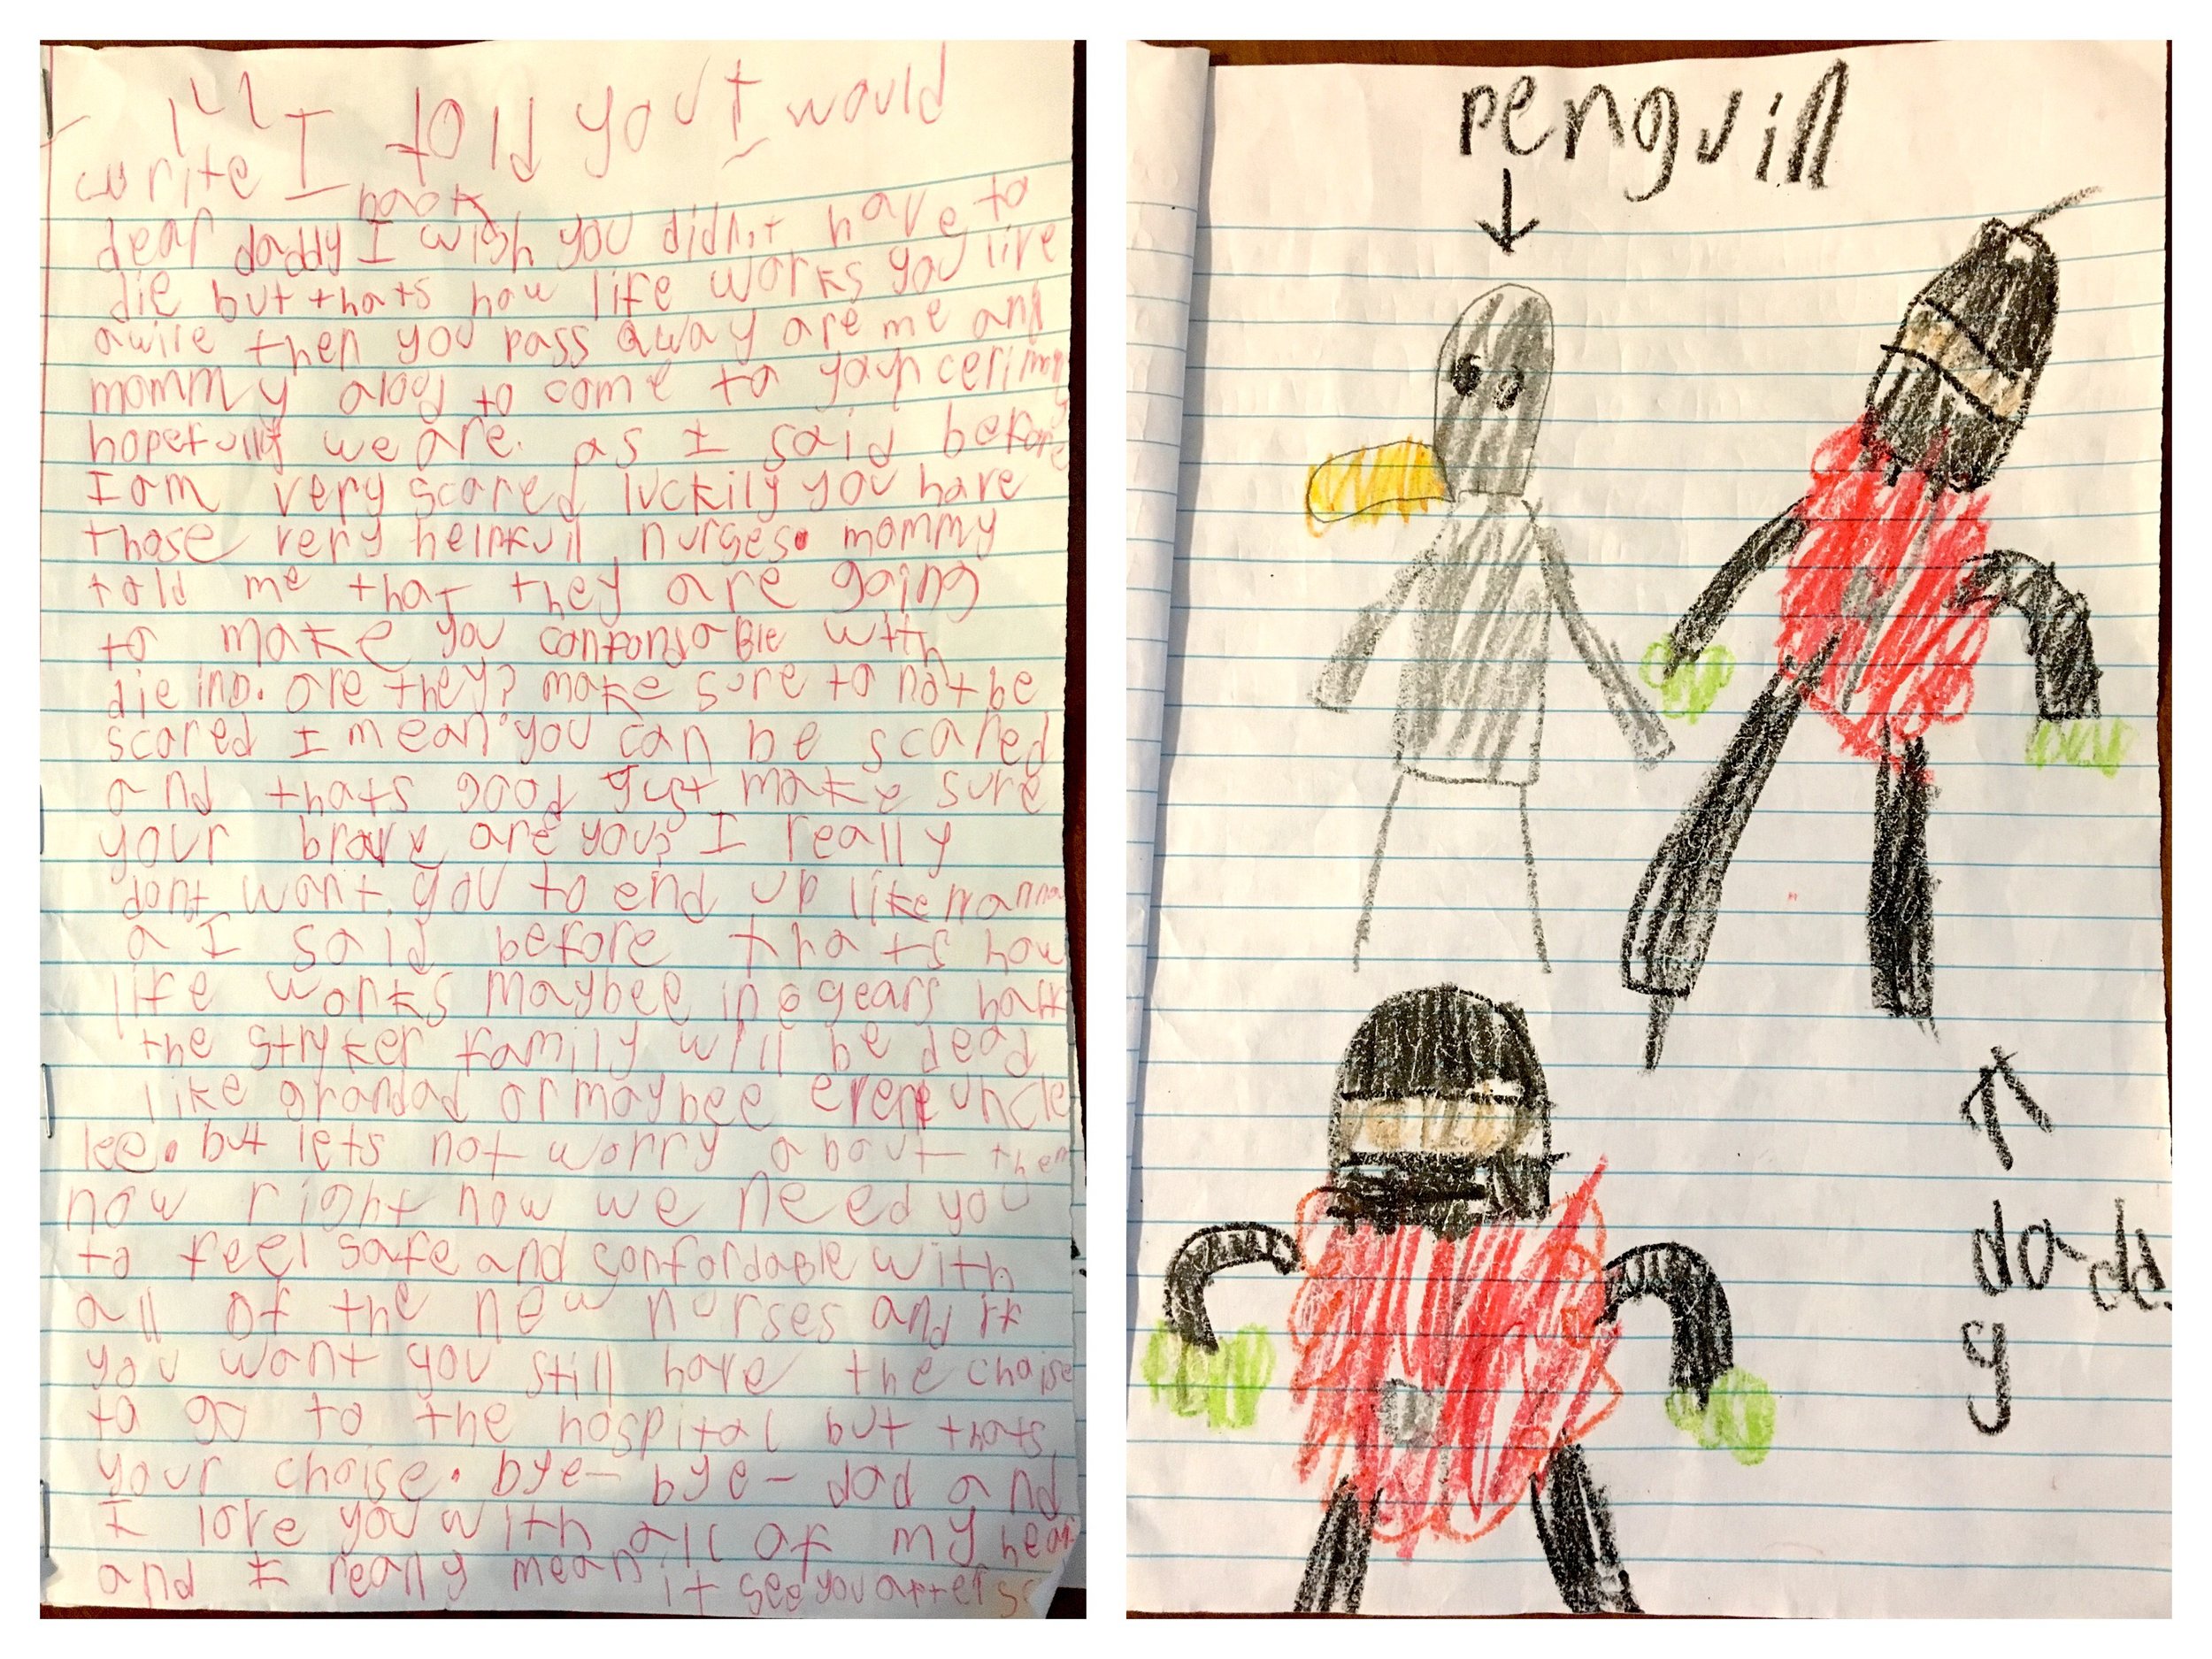 I told you I would
write I
book
dear daddy I wish you didn't have to
die but thats how life works you live
awile then you pass away are me and
mommy alood to come to your cerimny
hopefully we are. as I said before
I am very scared luckily you have
those very helpfull nurses. mommy
told me that they are going
to make you confordable with
dieing. are they? make sure to not be
scared I mean you can be scared
and thats good just make sure
your brave are you? I really
dont want you to end up like nanna
a I said before thats how
life works maybee in 6 years half
the Stryker family will be dead
like grandad or maybee even uncle
lee. but lets not worry about them
now right now we need you
to feel safe and confordable with
all of the new nurses and if
you want you still have the choise
to go to the hospital but thats
your choise. bye-bye-dad and
I love you with all of my heart
and I really mean it see you
penguill
dadd
y